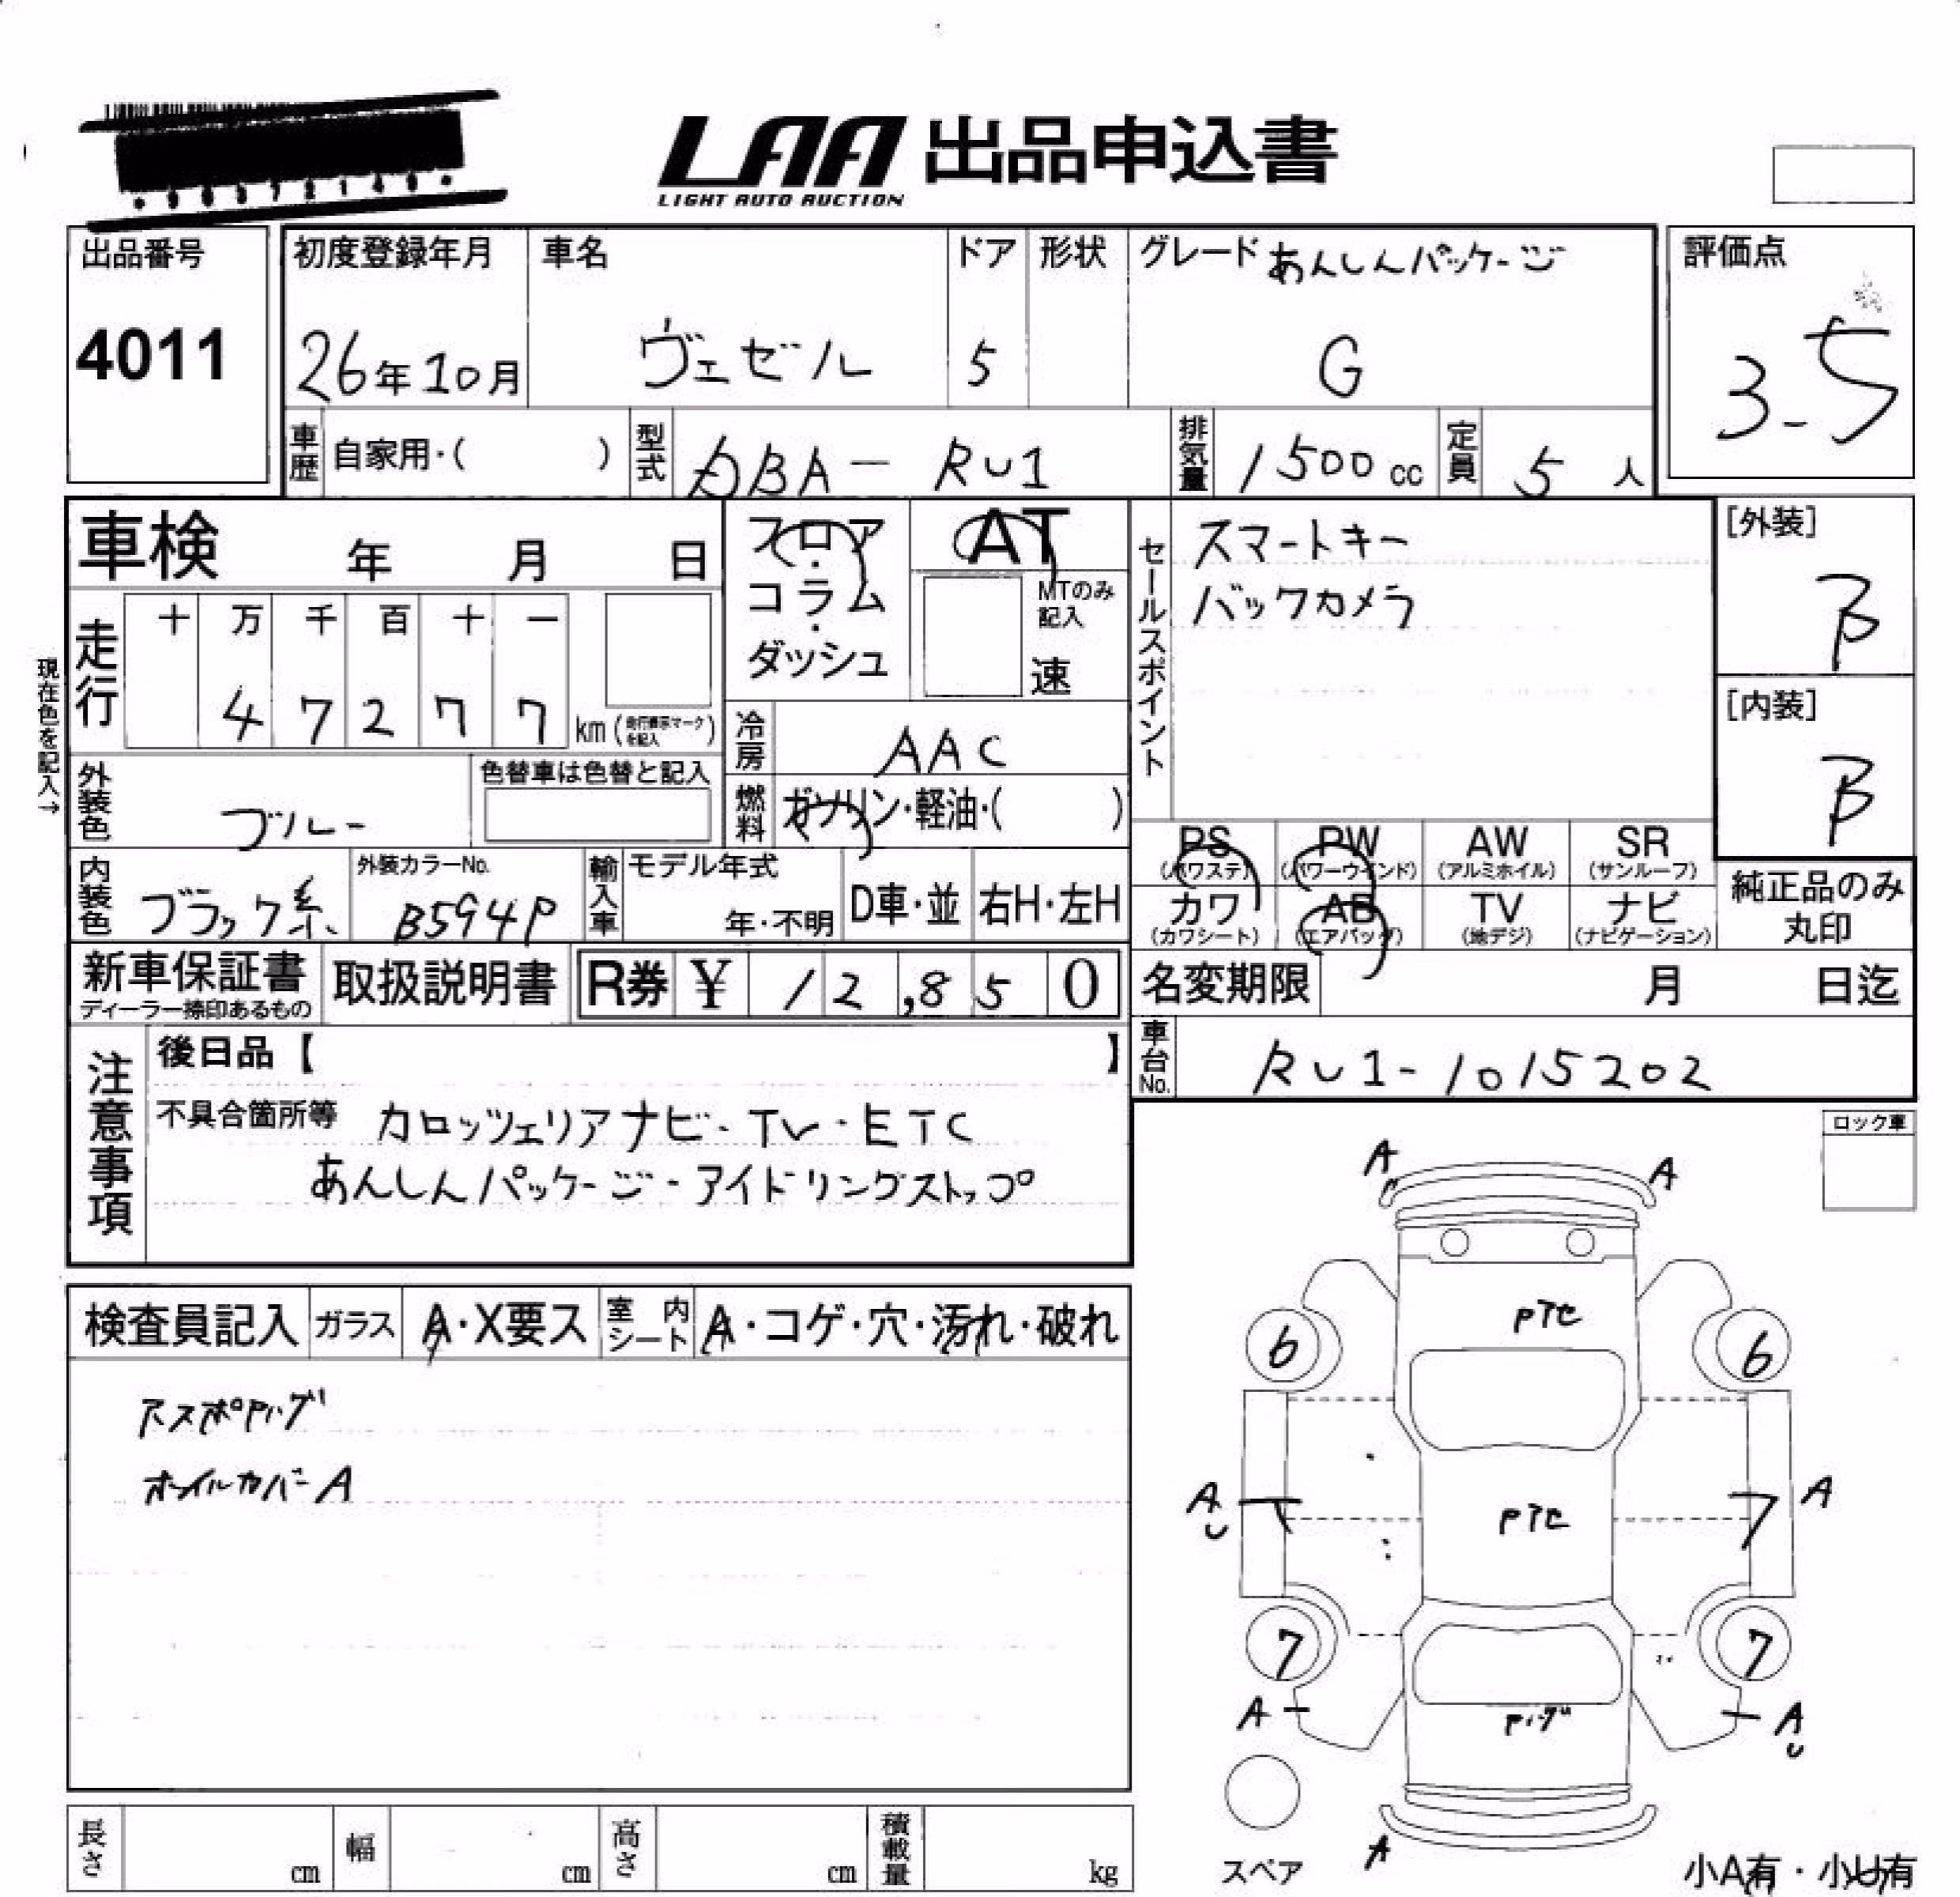 LAA 出品申込書
LIGHT AUTO AUCTION
出品番号
4011
初度登録年月
26年10月
車名
ヴェゼル
ドア
5
形状
グレード あんしんパッケージ
G
評価点
3-5
車歴 自家用・( )
型式 DBA-RU1
排気量 1500cc
定員 5人
車検 年 月 日
フロア・コラム・ダッシュ
AT
MTのみ記入
速
セールスポイント
スマートキー
バックカメラ
[外装]
B
[内装]
B
現在色を記入→
走行 十 万 千 百 十 一
47277 km (走行表示マークを記入)
冷房 AAC
外装色 ブルー
色替車は色替と記入
燃料 ガソリン・軽油・( )
内装色 ブラック系
外装カラーNo.
B594P
輸入車 モデル年式
年・不明
D車・並
右H・左H
PS (パワステ)
PW (パワーウインド)
AW (アルミホイル)
SR (サンルーフ)
カワ (カワシート)
AB (エアバッグ)
TV (地デジ)
ナビ (ナビゲーション)
純正品のみ丸印
新車保証書
ディーラー捺印あるもの
取扱説明書
R券 ¥ 12,850
名変期限 月 日迄
車台No. RU1-1015202
注意事項
後日品【 】
不具合箇所等 カロッツェリアナビ・TV・ETC
あんしんパッケージ・アイドリングストップ
ロック車
検査員記入 ガラス A・X要ス 室内シート A・コゲ・穴・汚れ・破れ
ホイルカバーA
A A
PTC
6 6
A A
PTC
7 7
A A
A
スペア
小A有・小U有
長さ cm 幅 cm 高さ cm 積載量 kg